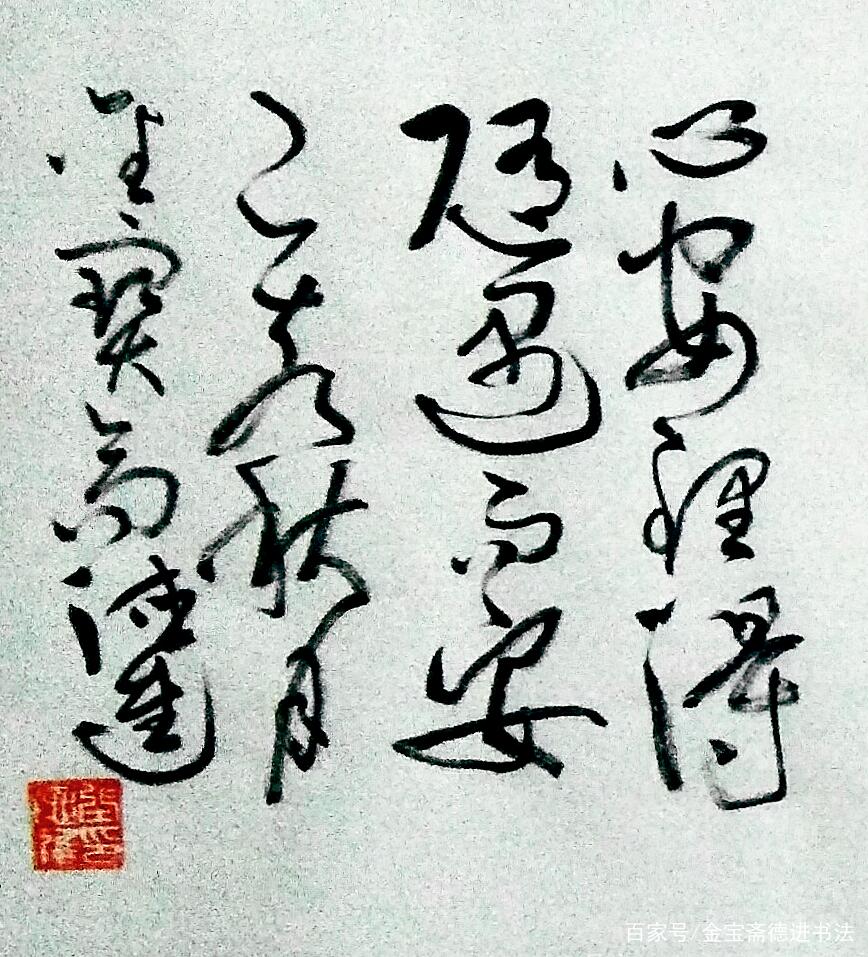 心安理得
隨遇而安
己亥秋月
金寶斋德進
百家号/金宝斋德进书法